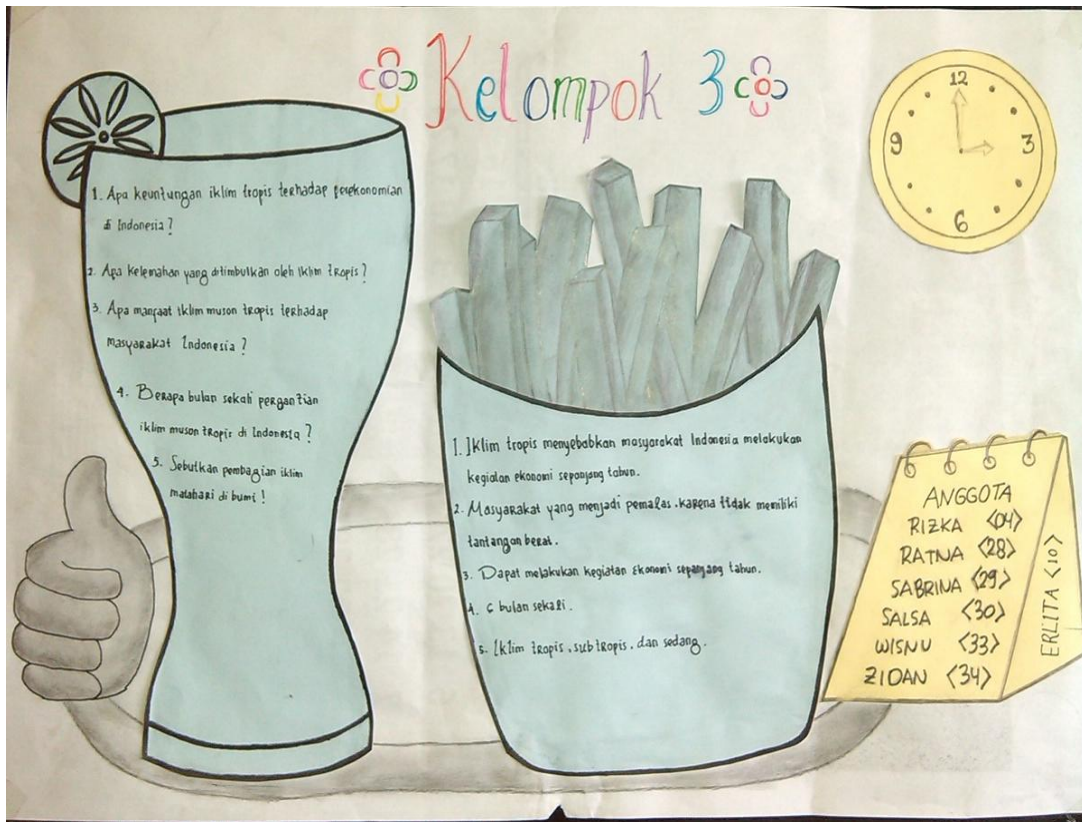 Kelompok 3
1. Apa keuntungan iklim tropis terhadap perekonomian
di Indonesia?
2. Apa kelemahan yang ditimbulkan oleh iklim tropis?
3. Apa manfaat iklim muson tropis terhadap
masyarakat Indonesia?
4. Berapa bulan sekali pergantian
iklim muson tropis di Indonesia?
5. Sebutkan pembagian iklim
matahari di bumi!
1. Iklim tropis menyebabkan masyarakat Indonesia melakukan
kegiatan ekonomi sepanjang tahun.
2. Masyarakat yang menjadi pemalas, karena tidak memiliki
tantangan berat.
3. Dapat melakukan kegiatan ekonomi sepanjang tahun.
4. 6 bulan sekali.
5. Iklim tropis, sub tropis, dan sedang.
12
9
3
6
ANGGOTA
RIZKA <04>
RATNA <28>
SABRINA <29>
SALSA <30>
WISNU <33>
ZIDAN <34>
ERLITA <10>